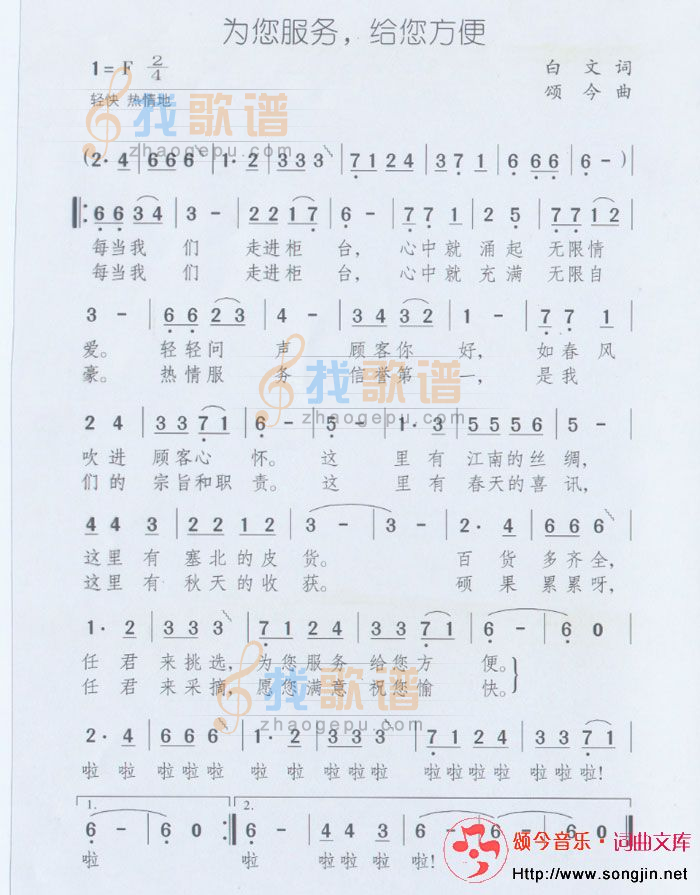 为您服务，给您方便
1 = F 2/4
白 文 词
轻快 热情地
颂 今 曲
找歌谱
zhaogepu.com
(2· 4 | 6 6 6 | 1· 2 | 3 3 3 | 7 1 2 4 | 3 7 1 | 6 6 6 | 6 - )
‖: 6 6 3 4 | 3 - | 2 2 1 7 | 6 - | 7 7 1 | 2 5 | 7 7 1 2 |
每当我 们 走进柜 台， 心中就 涌起 无限情
每当我 们 走进柜 台， 心中就 充满 无限自
3 - | 6 6 2 3 | 4 - | 3 4 3 2 | 1 - | 7 7 1 |
爱。 轻轻问 声 顾客你 好， 如春风
豪。 热情服 务 信誉第 一， 是我
找歌谱
zhaogepu.com
2 4 | 3 3 7 1 | 6 - | 5 - | 1· 3 | 5 5 5 6 | 5 - |
吹进 顾客心 怀。 这 里有 江南的丝绸，
们的 宗旨和职 责。 这 里有 春天的喜讯，
4 4 3 | 2 2 1 2 | 3 - | 3 - | 2· 4 | 6 6 6 |
这里有 塞北的皮 货。 百货 多齐全，
这里有 秋天的收 获。 硕果 累累呀，
1· 2 | 3 3 3 | 7 1 2 4 | 3 3 7 1 | 6 - | 6 0 |
任君 来挑选， 为您服务 给您方 便。
任君 来采摘， 愿您满意 祝您愉 快。
找歌谱
zhaogepu.com
2· 4 | 6 6 6 | 1· 2 | 3 3 3 | 7 1 2 4 | 3 3 7 1 |
啦 啦 啦啦啦 啦 啦 啦啦啦 啦啦啦啦 啦啦啦!
1. 6 - | 6 0 :‖ 2. 6 - | 4 4 3 | 6 - | 6 0 ‖
啦 啦 啦啦啦 啦!
颂今音乐·词曲文库
Http://www.songjin.net